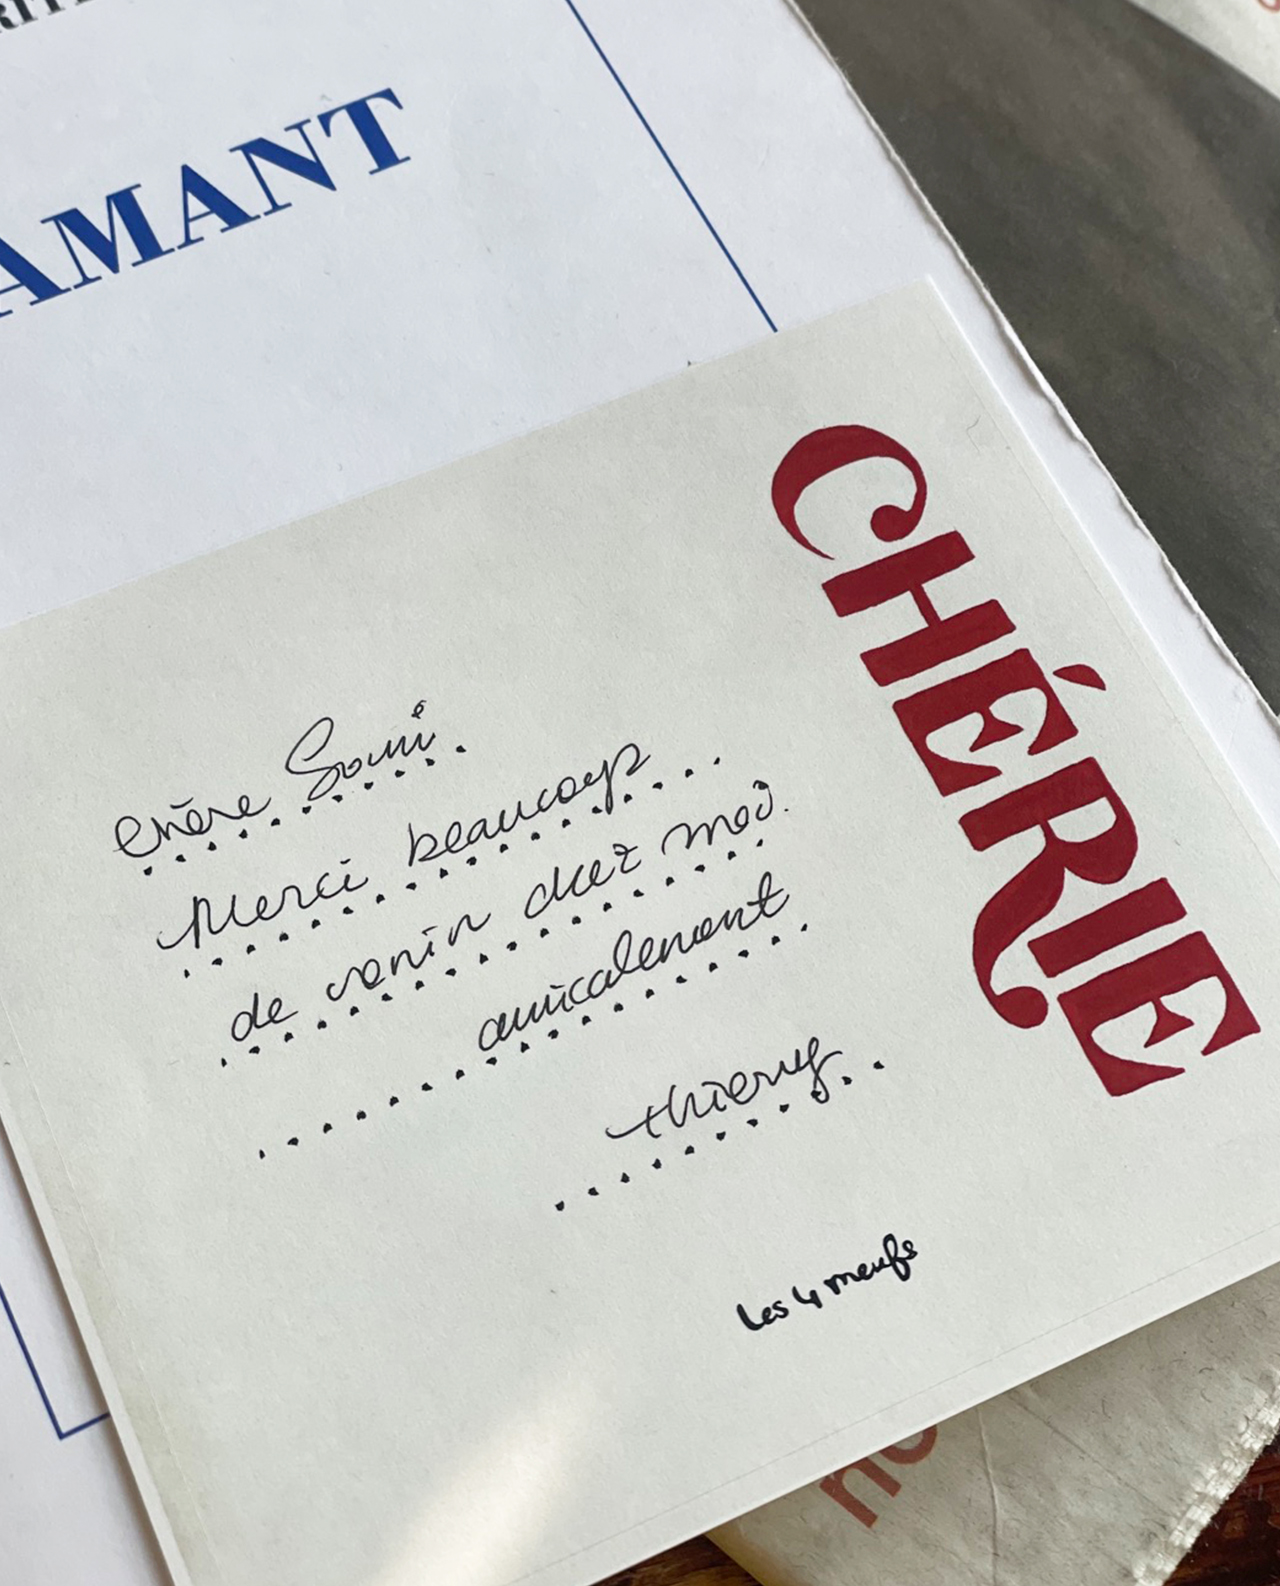 AMANT
CHÉRIE
Chère Somi
Merci beaucoup
de venir chez moi.
amicalement
thierry
Les 4 meufs
no